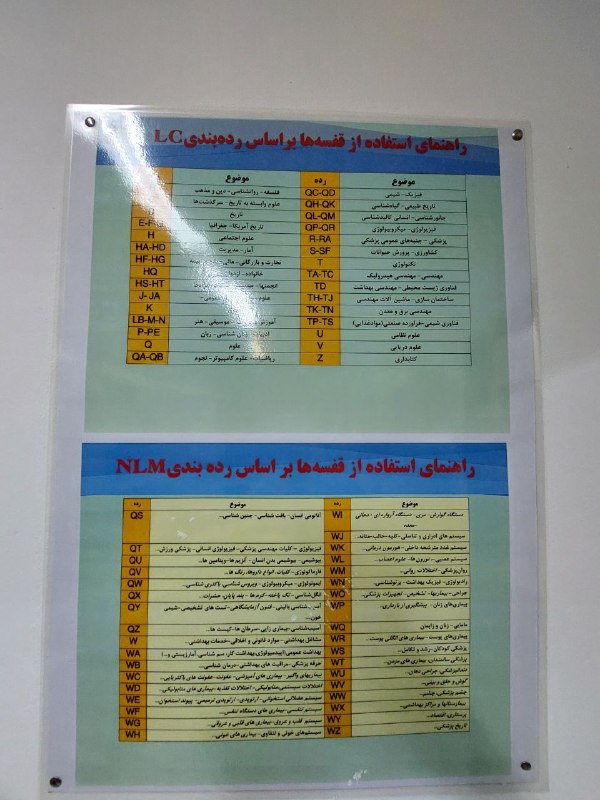 راهنمای استفاده از قفسه‌ها براساس رده‌بندی LC
موضوع رده موضوع
فلسفه - روانشناسی - دین و مذهب QC-QD فیزیک - شیمی
علوم وابسته به تاریخ - سرگذشت‌ها QH-QK تاریخ طبیعی - گیاه‌شناسی
تاریخ QL-QM جانورشناسی - انسانی کالبدشناسی
تاریخ آمریکا - جغرافیا QP-QR فیزیولوژی - میکروبیولوژی
H علوم اجتماعی R-RA پزشکی - جنبه‌های عمومی پزشکی
HA-HD آمار - مدیریت S-SF کشاورزی - پرورش حیوانات
HF-HG تجارت و بازرگانی T تکنولوژی
HQ خانواده TA-TC مهندسی - مهندسی هیدرولیک
HS-HT انجمنها TD فناوری زیست محیطی - مهندسی بهداشت
J-JA علوم TH-TJ ساختمان سازی - ماشین آلات مهندسی
K TK-TN مهندسی برق و معدن
LB-M-N موسیقی - هنر TP-TS فناوری شیمی - فراورده صنعتی (موادغذایی)
P-PE زبان شناسی - زبان U علوم نظامی
Q علوم V علوم دریایی
QA-QB ریاضیات - علوم کامپیوتر - نجوم Z کتابداری
راهنمای استفاده از قفسه‌ها بر اساس رده بندی NLM
رده موضوع رده موضوع
QS آناتومی انسان - بافت شناسی - جنین شناسی... WI دستگاه گوارش
WJ سیستم های ادراری و تناسلی - کلیه - حالب - مثانه...
QT فیزیولوژی - کلیات مهندسی پزشکی - فیزیولوژی انسانی - پزشکی ورزش... WK سیستم غدد مترشحه داخلی - هورمون درمانی...
QU بیوشیمی - بیوشیمی بدن انسان - آنزیم ها - ویتامین ها... WL سیستم عصبی - نورون ها - علوم اعصاب...
QV فارماکولوژی - کلیات - انواع داروها WM روان‌پزشکی - اختلالات روانی...
QW ایمونولوژی - میکروبیولوژی - ویروس شناسی باکتری شناسی... WN رادیولوژی - فیزیک بهداشت - پرتوشناسی
QX انگل‌شناسی - تک یاخته - کرم‌ها - بند پایان - حشرات... WO جراحی - بیماریها - تشخیص - تجهیزات پزشکی...
QY شناسی بالینی - فنون آزمایشگاهی - تست های تشخیصی - شیمی خون... WP بیماری‌های زنان - پیشگیری از بارداری...
QZ آسیب‌شناسی - بیماری زایی - سرطان ها - کیست ها... WQ مامایی - زنان و زایمان
W مشاغل بهداشتی - موارد قانونی و اخلاقی - خدمات بهداشتی... WR بیماری‌های پوست - بیماری‌های انگلی پوست...
WA بهداشت عمومی WS پزشکی کودکان - رشد و تکامل...
WB حرفه پزشکی - مراقبت های بهداشتی - درمان شناسی WT پزشکی سالمندان - بیماری های مزمن...
WC بیماریهای واگیر - بیماری های آمیزشی - عفونت WU دندانپزشکی - جراحی دهان
WD WV گوش و حلق و بینی...
WE سیستم عضلانی استخوانی - ارتوپدی WW چشم پزشکی
WF سیستم تنفسی - بیماری های دستگاه تنفس... WX بیمارستانها و مراکز بهداشتی...
WG سیستم قلب و عروق - بیماری های قلبی و عروقی... WY پرستاری
WH سیستم‌های خونی و لنفاوی - بیماری های خونی... WZ تاریخ پزشکی...